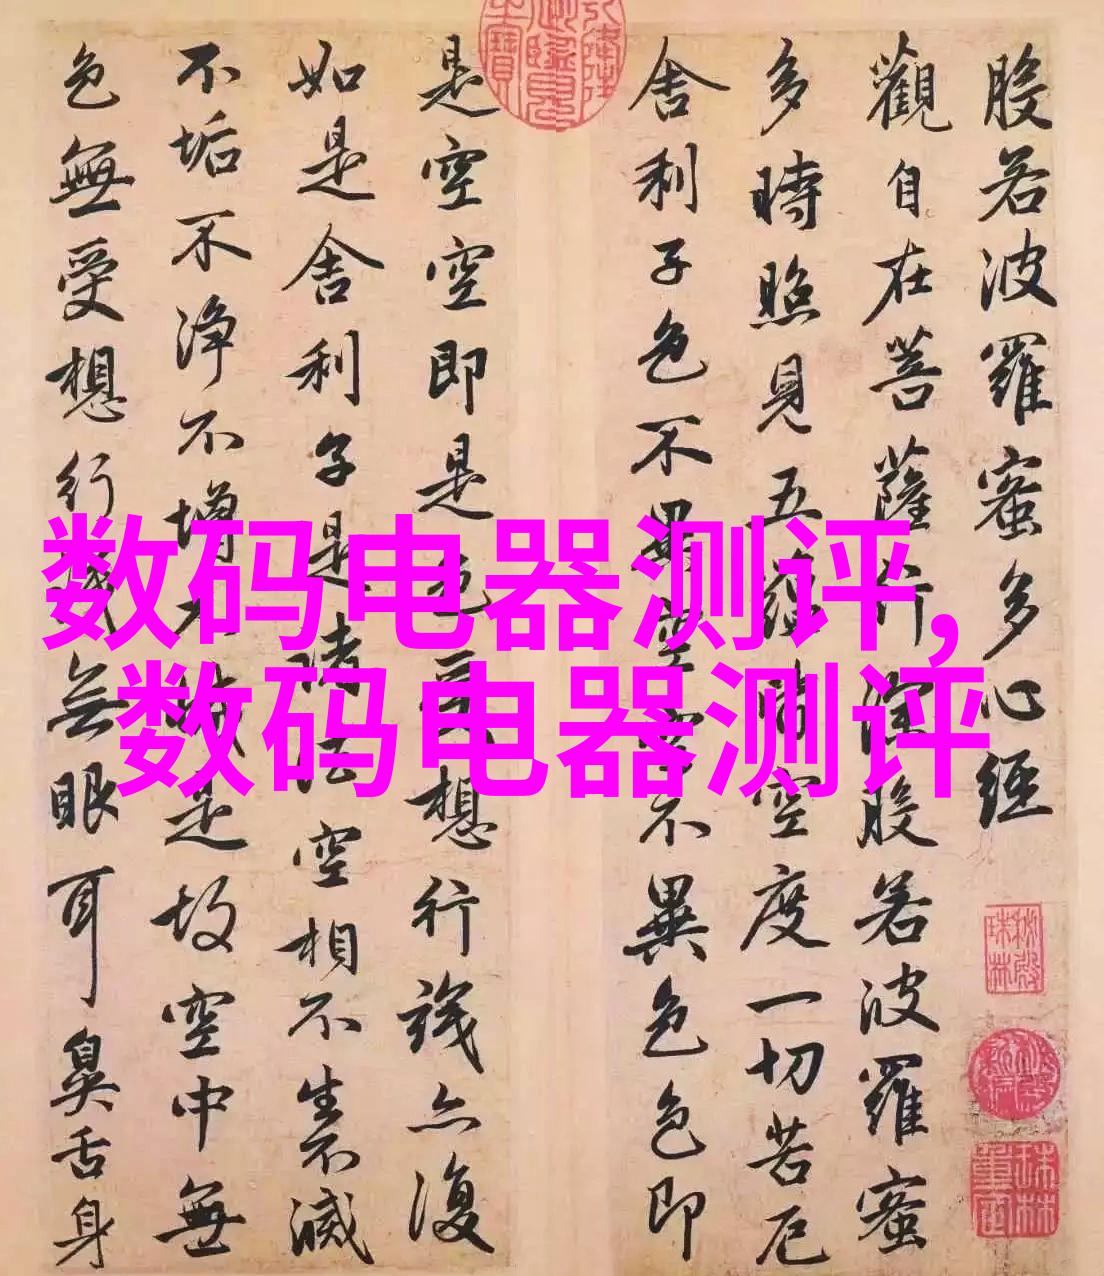 般若波羅蜜多心經
觀自在菩薩行深般若波羅蜜
多時照見五蘊皆空度一切苦厄
舍利子色不異空空不異色色即
是空空即是色受想行識亦復
如是舍利子是諸法空相不生不滅
不垢不净不增不減是故空中無
色無受想行識無眼耳鼻舌身
数码电器测评,
数码电器测评